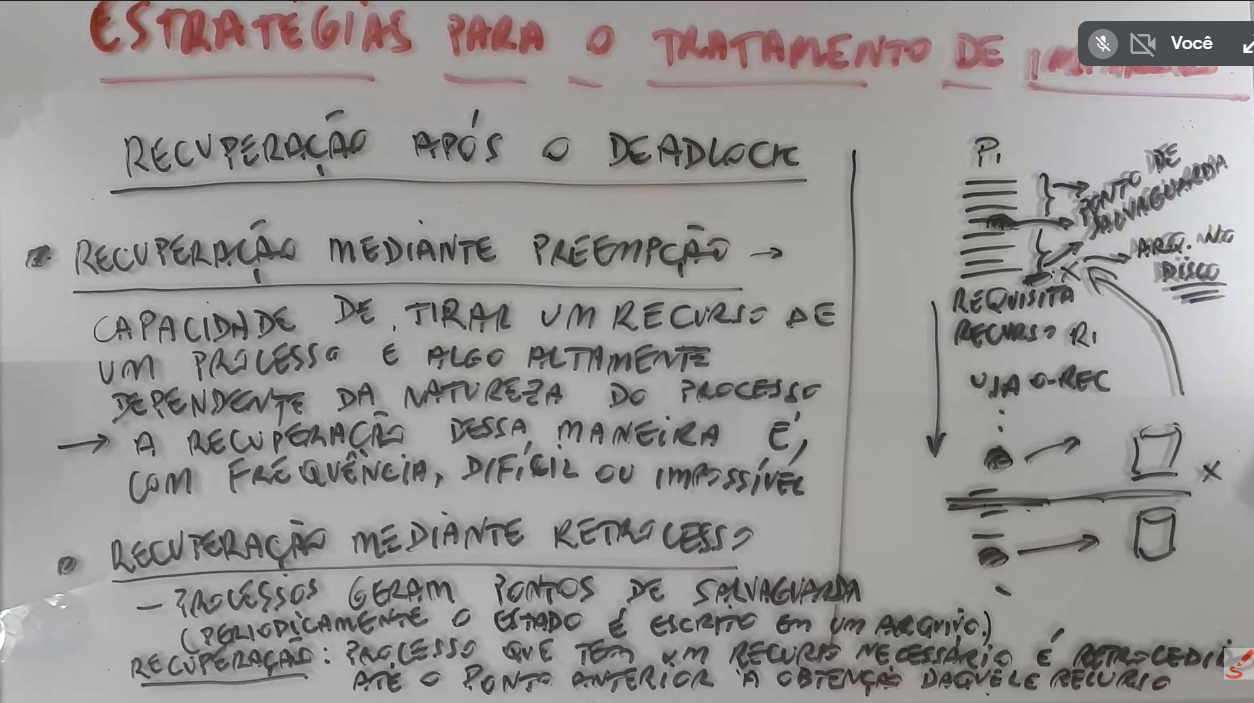 ESTRATÉGIAS PARA O TRATAMENTO DE
Você
RECUPERAÇÃO APÓS O DEADLOCK
RECUPERAÇÃO MEDIANTE PREEMPÇÃO →
CAPACIDADE DE TIRAR UM RECURSO DE
UM PROCESSO E ALGO ALTAMENTE
DEPENDENTE DA NATUREZA DO PROCESSO
→ A RECUPERAÇÃO DESSA MANEIRA É,
COM FREQUÊNCIA, DIFÍCIL OU IMPOSSÍVEL
RECUPERAÇÃO MEDIANTE RETROCESSO
– PROCESSOS GERAM PONTOS DE SALVAGUARDA
(PERIODICAMENTE O ESTADO É ESCRITO EM UM ARQUIVO.)
RECUPERAÇÃO: PROCESSO QUE TEM UM RECURSO NECESSÁRIO É
ATÉ O PONTO ANTERIOR À OBTENÇÃO DAQUELE RECURSO
P1
PONTO DE
SALVAGUARDA
ARQ. NO
DISCO
X
REQUISITA
RECURSO R1
USA O REC
X